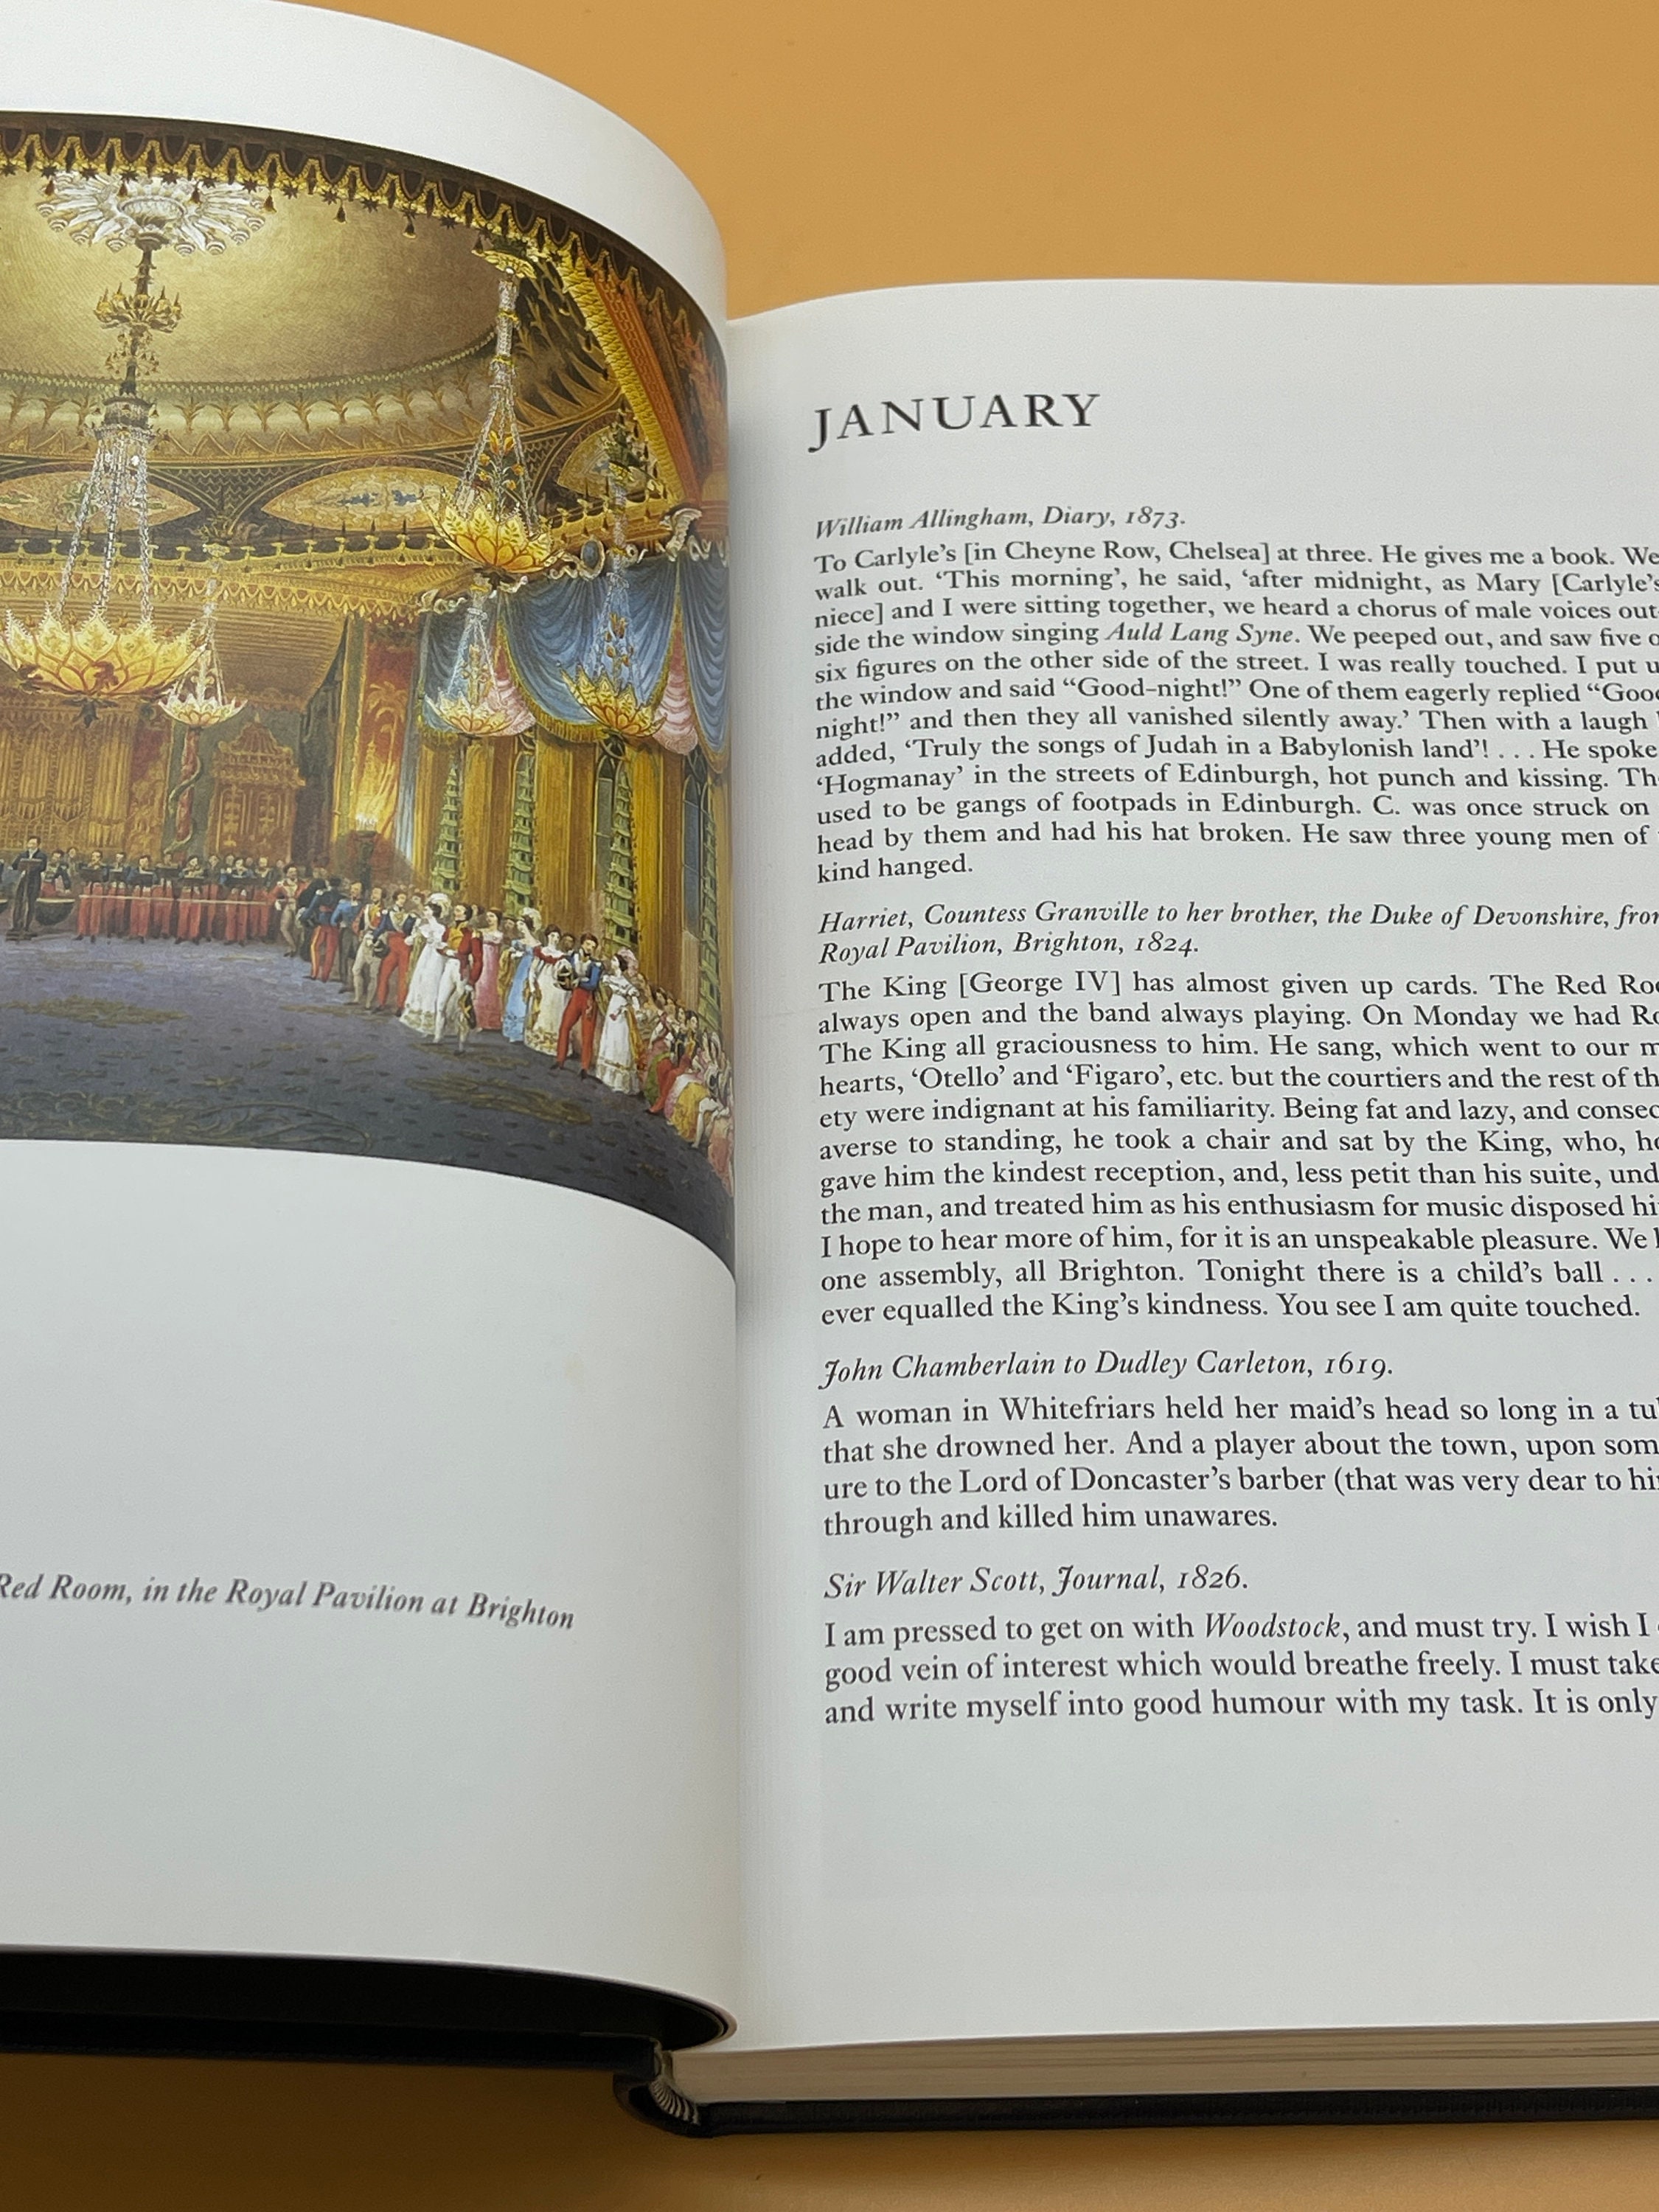 Red Room, in the Royal Pavilion at Brighton
JANUARY
William Allingham, Diary, 1873.
To Carlyle's [in Cheyne Row, Chelsea] at three. He gives me a book. We
walk out. 'This morning', he said, 'after midnight, as Mary [Carlyle's
niece] and I were sitting together, we heard a chorus of male voices out-
side the window singing Auld Lang Syne. We peeped out, and saw five
six figures on the other side of the street. I was really touched. I put
the window and said “Good-night!” One of them eagerly replied “Good
night!” and then they all vanished silently away.' Then with a laugh
added, 'Truly the songs of Judah in a Babylonish land'! . . . He spoke
'Hogmanay' in the streets of Edinburgh, hot punch and kissing.
used to be gangs of footpads in Edinburgh. C. was once struck on
head by them and had his hat broken. He saw three young men of
kind hanged.
Harriet, Countess Granville to her brother, the Duke of Devonshire,
Royal Pavilion, Brighton, 1824.
The King [George IV] has almost given up cards. The Red
always open and the band always playing. On Monday we had
The King all graciousness to him. He sang, which went to our
hearts, 'Otello' and 'Figaro', etc. but the courtiers and the rest of
ety were indignant at his familiarity. Being fat and lazy, and
averse to standing, he took a chair and sat by the King, who,
gave him the kindest reception, and, less petit than his suite,
the man, and treated him as his enthusiasm for music disposed
I hope to hear more of him, for it is an unspeakable pleasure. We
one assembly, all Brighton. Tonight there is a child's ball . . .
ever equalled the King's kindness. You see I am quite touched.
John Chamberlain to Dudley Carleton, 1619.
A woman in Whitefriars held her maid's head so long in a
that she drowned her. And a player about the town, upon
ure to the Lord of Doncaster's barber (that was very dear to
through and killed him unawares.
Sir Walter Scott, Journal, 1826.
I am pressed to get on with Woodstock, and must try. I wish I
good vein of interest which would breathe freely. I must take
and write myself into good humour with my task. It is only